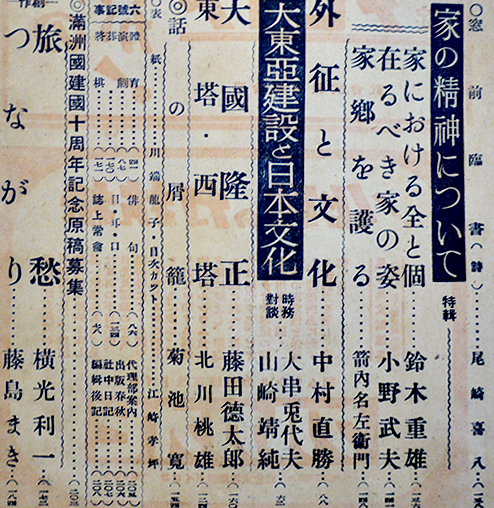 ◎窓前臨書(詩)……尾崎喜八…
家の精神について 特輯
家における全と個……鈴木重雄…
在るべき家の姿……小野武夫…
家郷を護る……箭内名左衛門…
外征と文化……中村直勝…(八八)
大東亞建設と日本文化 時務對談 大串兎代夫 山崎靖純…(六二)
大國隆正……藤田德太郎…
東塔・西塔……北川桃雄…
◎話の屑籠……菊池寛…
◎表紙……川端龍子・目次カット……江崎孝坪
六號記事
體育……(四一)
演劇……(八七)
將棋……(七一)
俳句……(八六)
目・耳・口……(三四)
誌上常會……(六八)
代理部案内……
出版春秋……
社中日記……
編輯後記……(二〇八)
◎滿洲國建國十周年記念原稿募集……(二〇三)
創作
旅愁……橫光利一…(一七二)
つながり……藤島まき…(一八四)